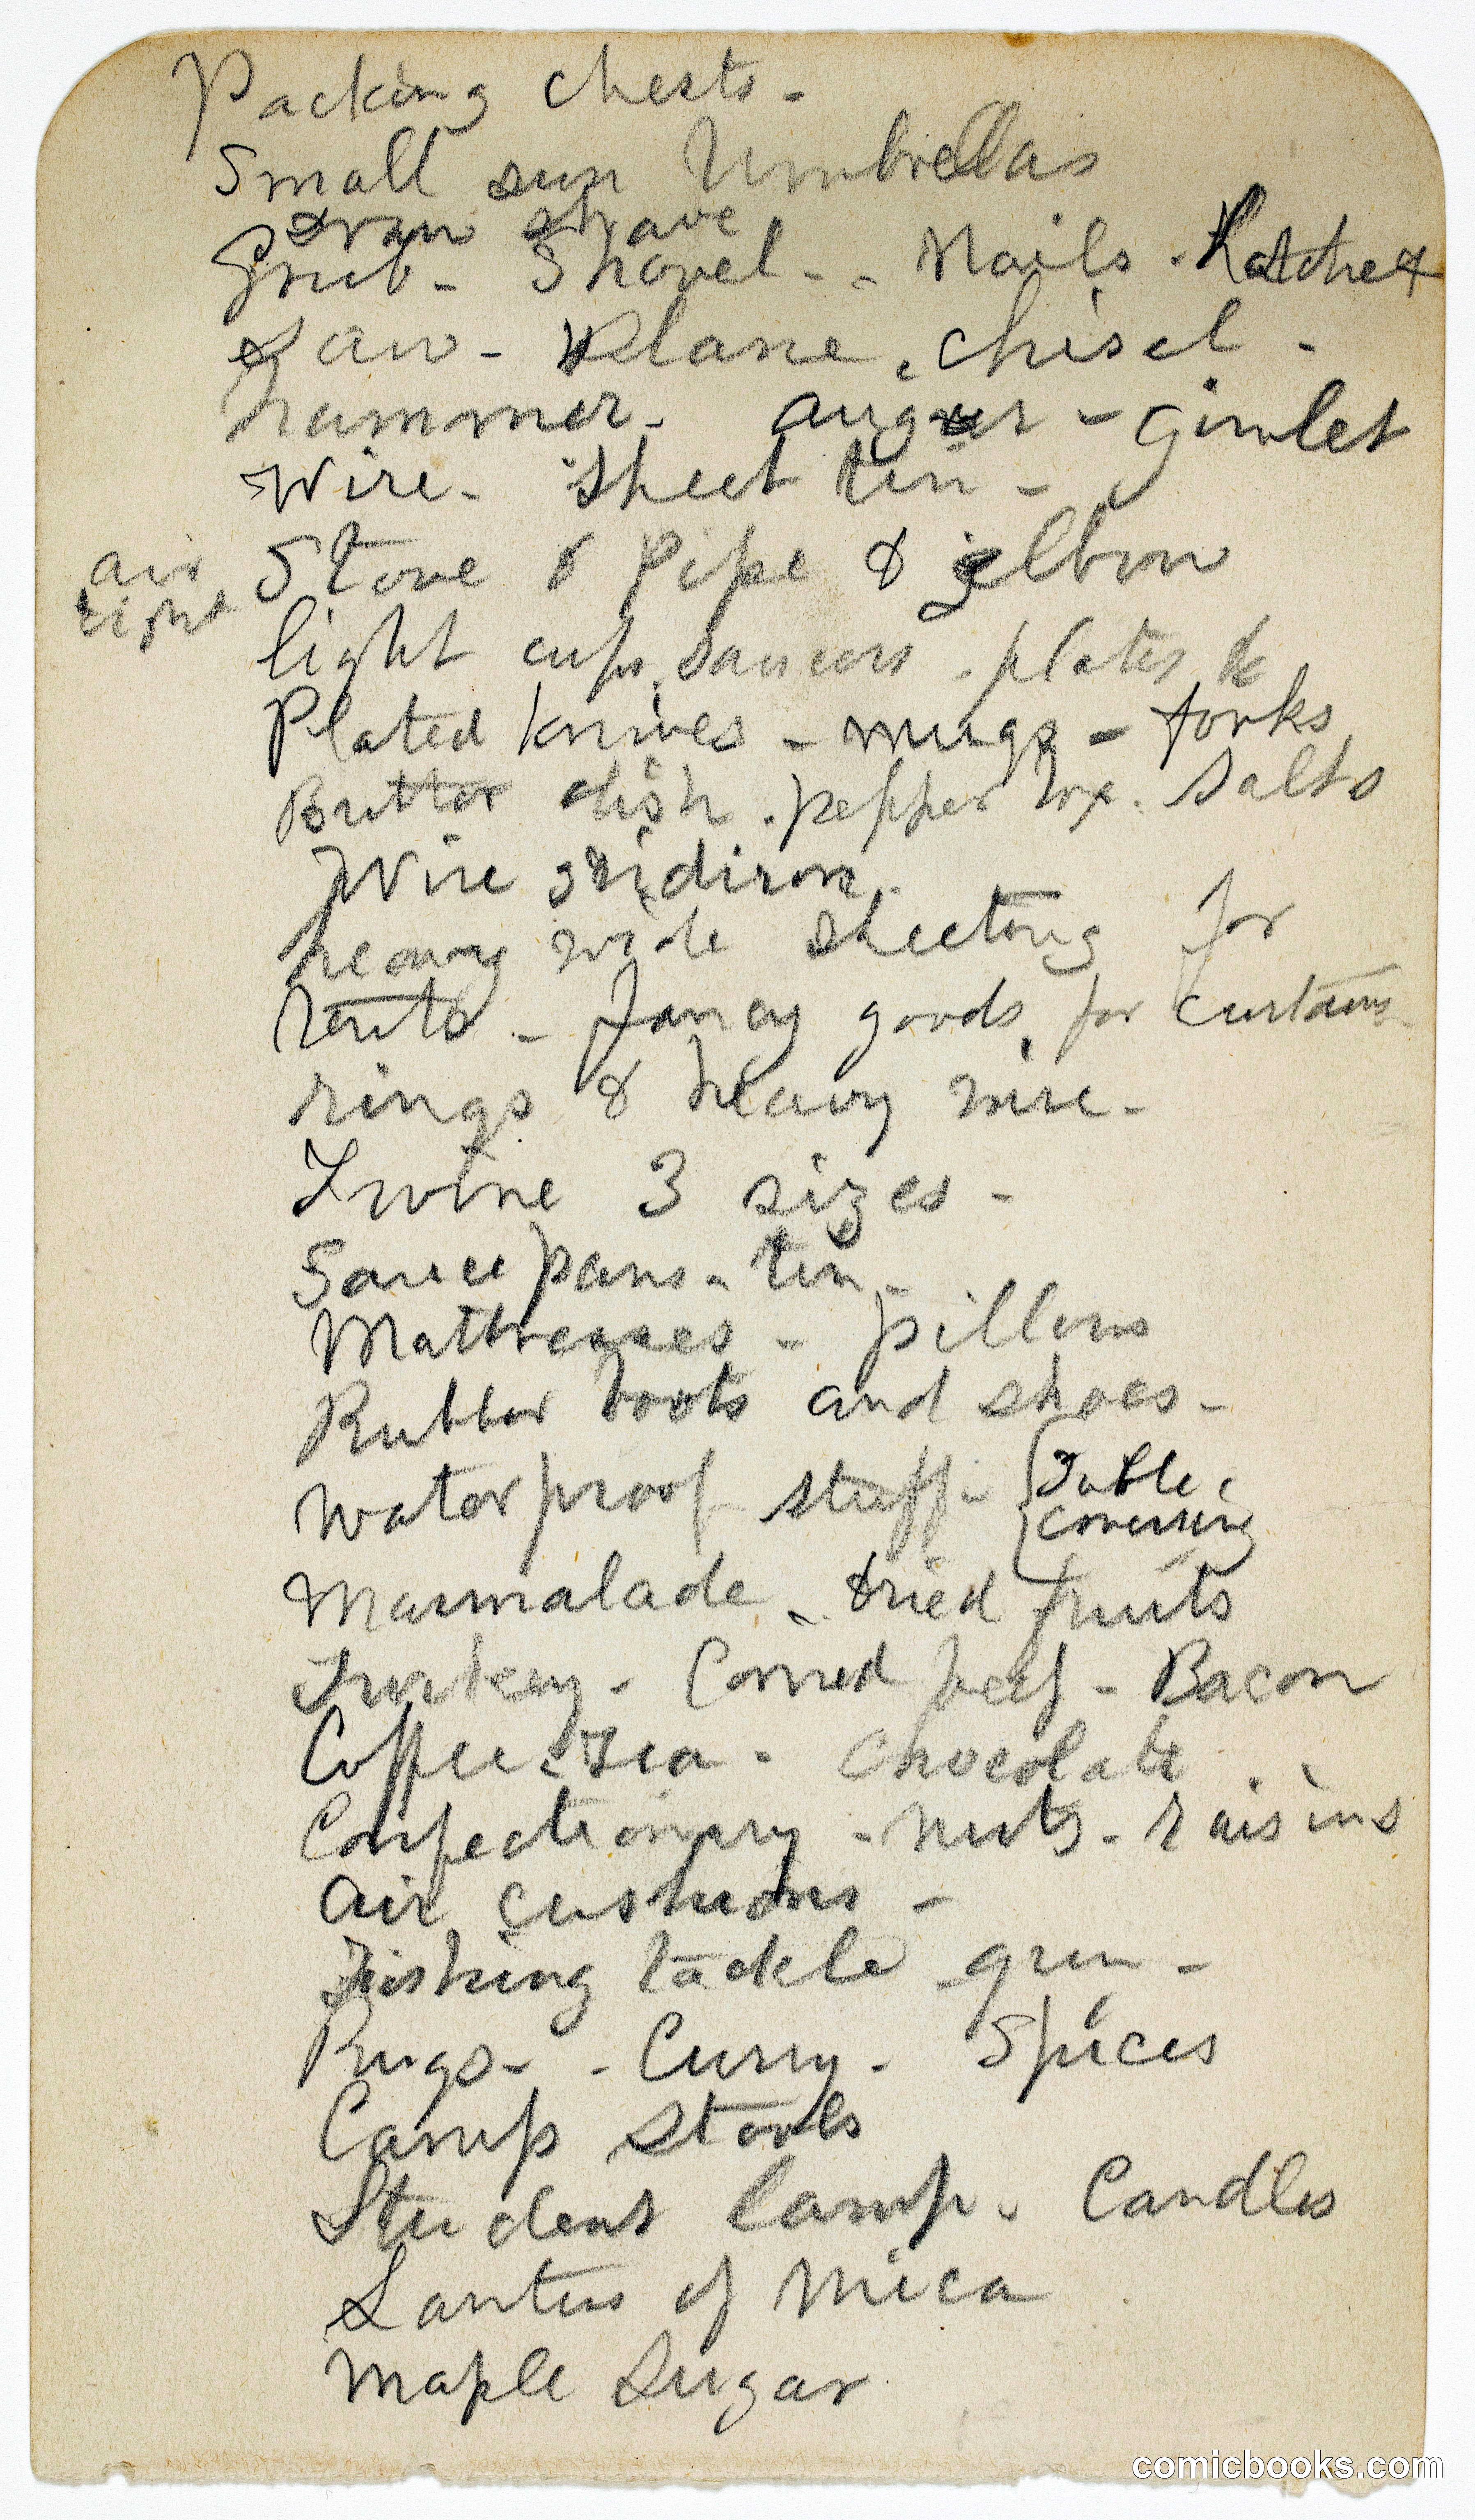 Packing chests -
Small sun Umbrellas
Draw shave
Grub - Shovel - - Nails - Hatchet
Saw - Plane - chisel -
hammer - auger - Gimlet
Wire - Sheet tin -
air tight Stove & Pipe & elbow
light cups, saucers - plates &c
Plated knives - mugs - forks
Butter dish - pepper box - Salts
Wire gridiron -
heavy wide sheeting for
tents - Fancy goods for curtains -
rings & heavy wire -
Twine 3 sizes -
Sauce pans - tin -
Mattresses - pillows
Rubber boots and shoes -
Waterproof stuff - { Table
covering
Marmalade - dried fruits
Turkey - Corned beef - Bacon
Coffee - Tea - Chocolate
Confectionary - Nuts - raisins
air cushions -
Fishing tackle - gun -
Rugs - - Curry - Spices
Camp Stools
Student lamp - Candles
of Mica
Maple Sugar
comicbooks.com